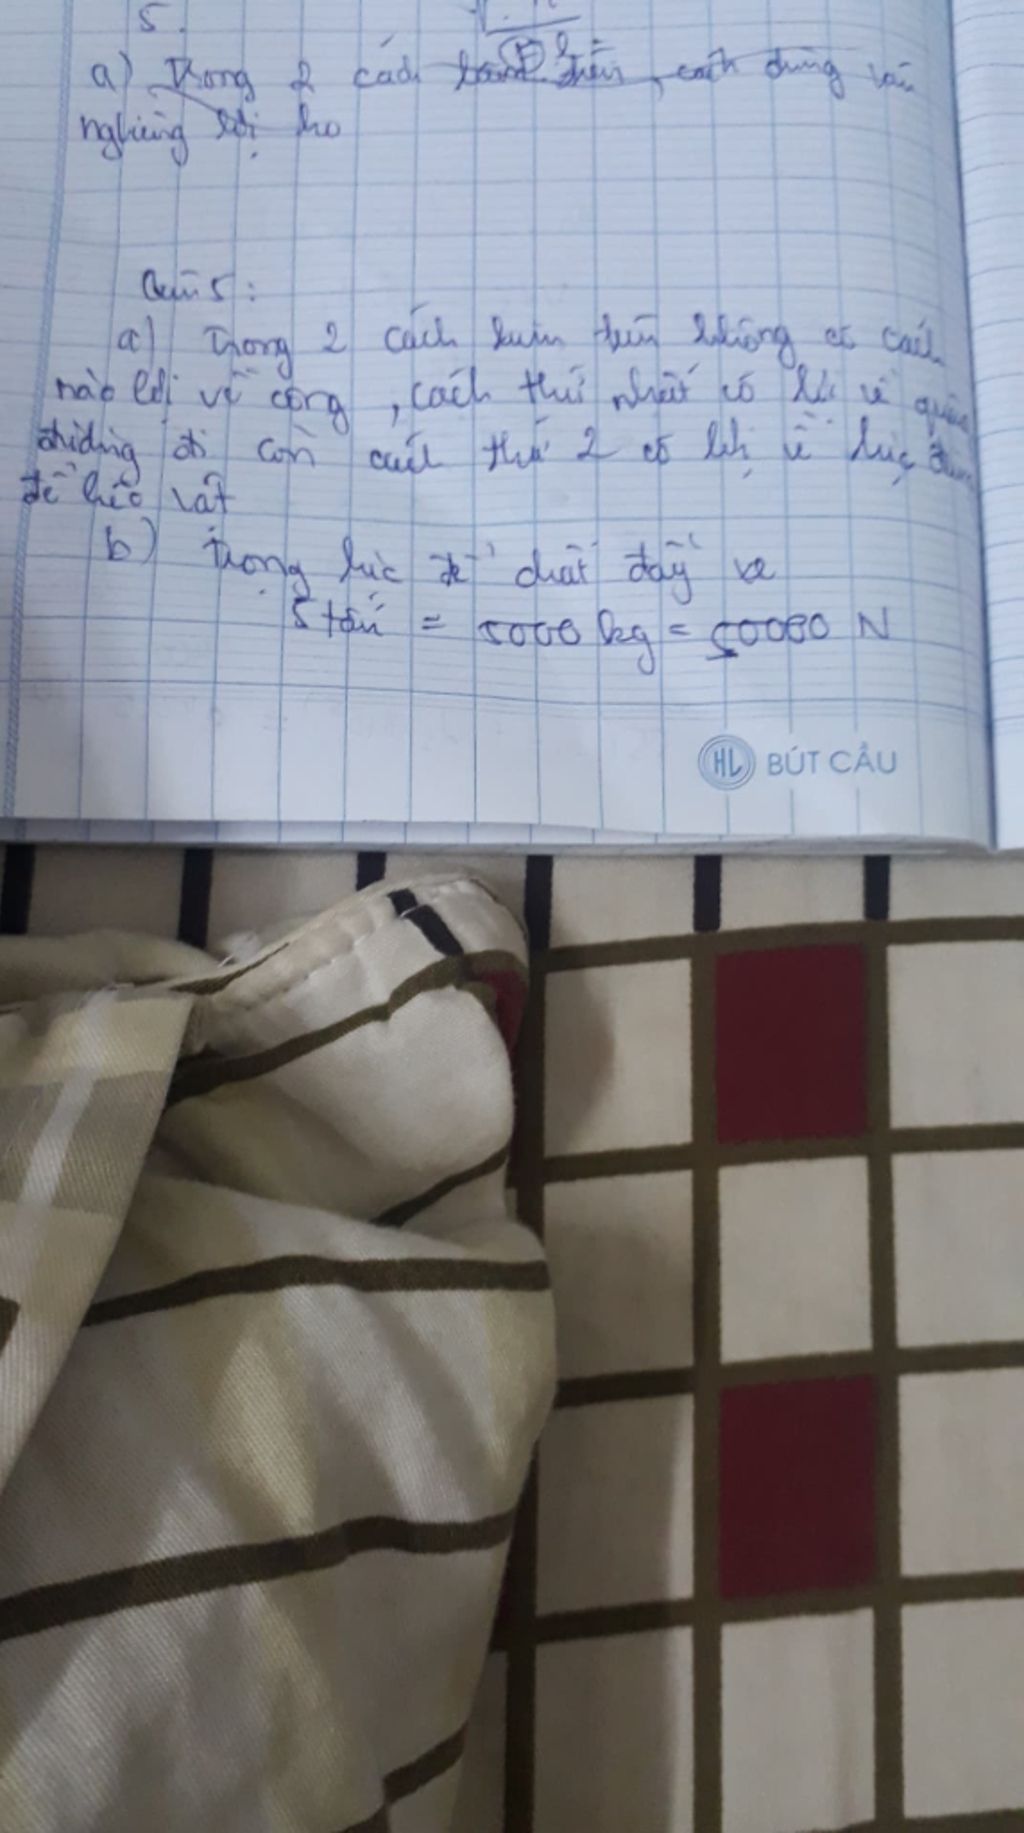 5.
a) Trong 2 cách kéo trên, cách dùng ván
nghiêng lợi ho
Câu 5:
a) Trong 2 cách trên không có cách
nào lợi về công, cách thứ nhất có lợi về quãng
đường đi còn cách thứ 2 có lợi về lực
để kéo vật
b) Trọng lực để chất đầy xe
5 tấn = 5000 kg = 50000 N
HL BÚT CÂU